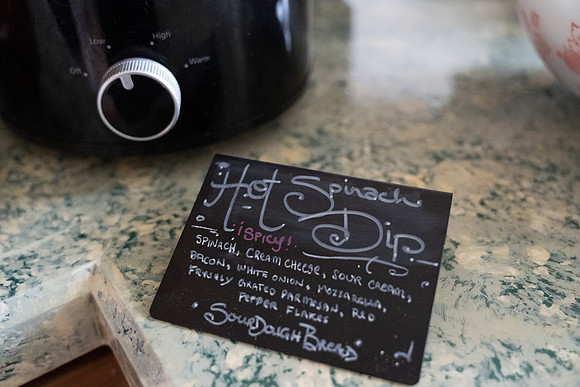 Off Low High Warm
Hot Spinach
Dip
¡Spicy!
SPINACH, CREAM CHEESE, SOUR CREAM,
BACON, WHITE ONION, MOZZARELLA,
FRESHLY GRATED PARMESAN, RED
PEPPER FLAKES
SOURDOUGH BREAD